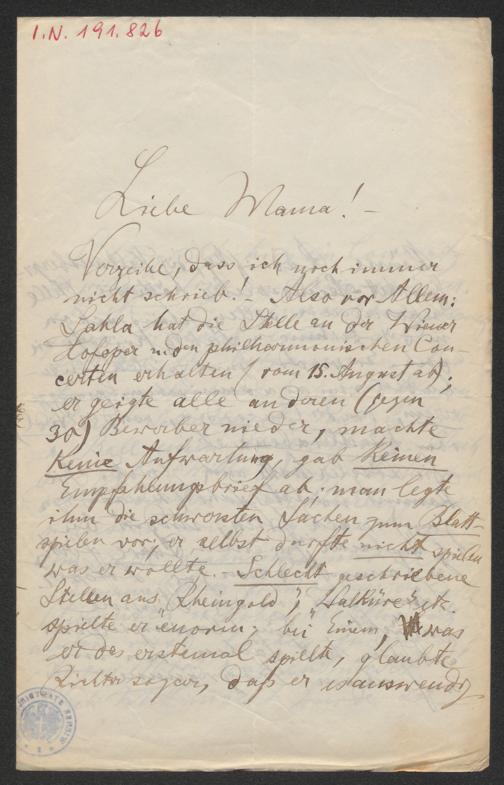 I.N. 191.826
Liebe Mama! –
Verzeihe, dass ich noch immer
nicht schrieb! – Also vor Allem:
Sahla hat die Stelle an der Wiener
Hofoper u. den philharmonischen Con-
certen erhalten (vom 15. August ab);
er geigte alle anderen (gegen
30) Bewerber nieder, machte
keine Aufwartung, gab keinen
Empfehlungsbrief ab, man legte
ihm die schwersten Sachen zum Blatt-
spielen vor, er selbst durfte nicht spielen
was er wollte. – Schlecht geschriebene
Stellen aus „Rheingold", „Walküre" etc.
spielte er enorm; bei Einem, was
er das erstemal spielte, glaubte
Richter sogar, daß er es auswendig